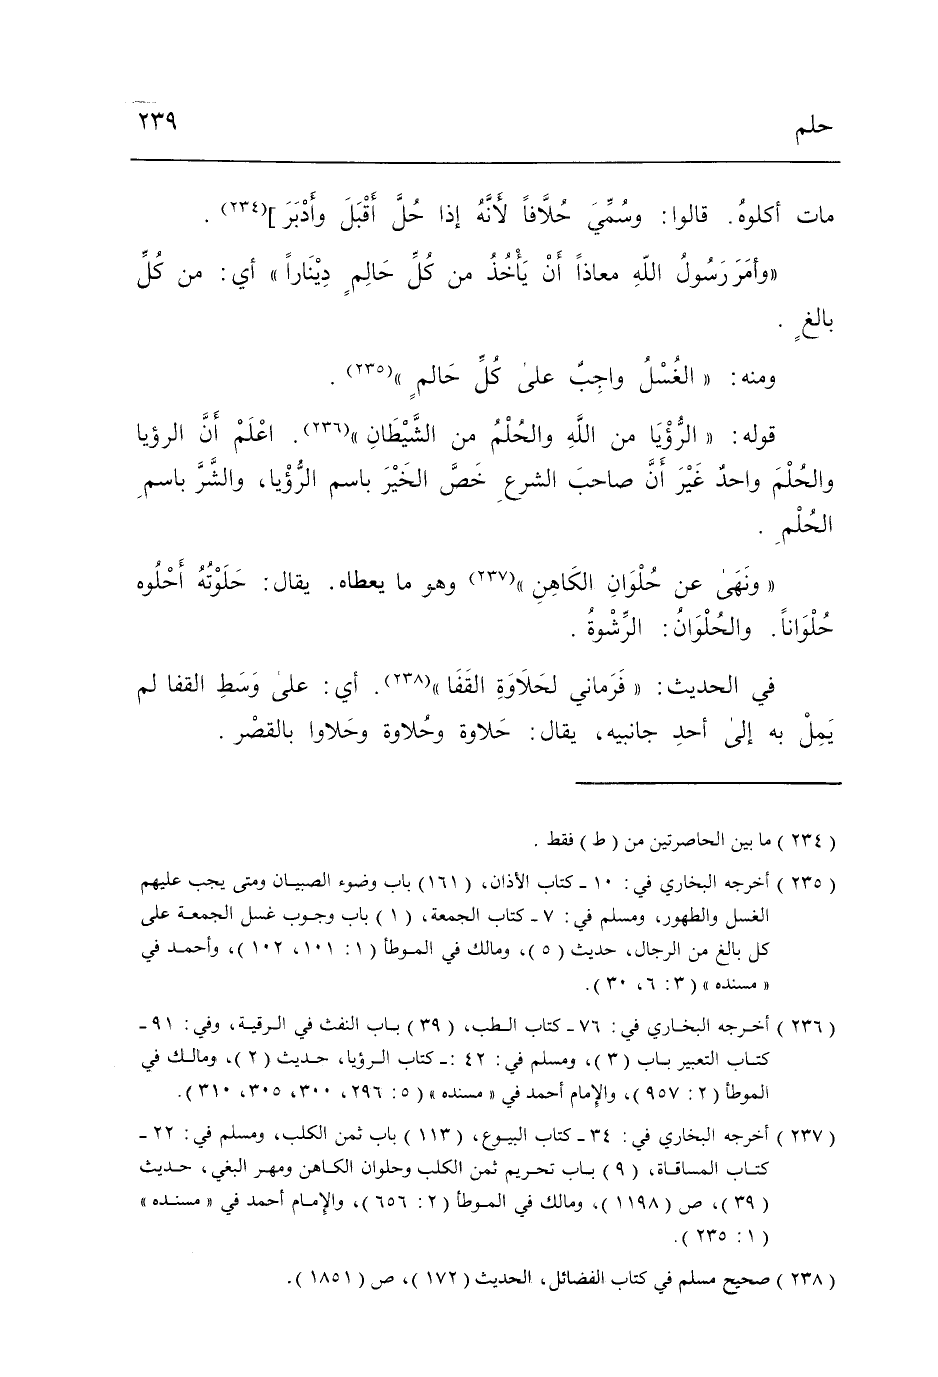 حلم
٢٣٩
مات أكلوهُ. قالوا: وسُمِّيَ حُلَّافاً لأنَّهُ إذا حُلَّ أَقْبَلَ وأَدْبَرَ ](٢٣٤) .
«وأمَرَ رَسُولُ اللهِ معاذاً أَنْ يَأْخُذُ من كُلِّ حَالِمٍ دِيْنَاراً» أي: من كُلِّ
بالغٍ .
ومنه: « الغُسْلُ واجِبٌ علىٰ كُلِّ حَالمٍ »(٢٣٥) .
قوله: « الرُّؤْيَا من اللَّهِ والحُلْمُ من الشَّيْطَانِ »(٢٣٦). اعْلَمْ أَنَّ الرؤيا
والحُلْمَ واحدٌ غَيْرَ أَنَّ صاحبَ الشرعِ خَصَّ الخَيْرَ باسم الرُّؤْيا، والشَّرَّ باسمِ
الحُلْمِ .
« ونَهَىٰ عن حُلْوَانِ الكَاهِنِ »(٢٣٧) وهو ما يعطاه. يقال: حَلَوْتُهُ أَحْلُوه
حُلْوَاناً. والحُلْوَانُ: الرِّشْوةُ .
في الحديث: « فَرَماني لحَلَاوَةِ القَفَا »(٢٣٨). أي: علىٰ وَسَطِ القفا لم
يَمِلْ به إلىٰ أحدِ جانبيه، يقال: حَلاوة وحُلاوة وحَلاوا بالقصْر .
( ٢٣٤ ) ما بين الحاصرتين من ( ط ) فقط .
( ٢٣٥ ) أخرجه البخاري في: ١٠ - كتاب الأذان، ( ١٦١) باب وضوء الصبيان ومتى يجب عليهم
الغسل والطهور، ومسلم في: ٧ - كتاب الجمعة، ( ١ ) باب وجوب غسل الجمعة على
كل بالغ من الرجال، حديث ( ٥ )، ومالك في الموطأ ( ١ : ١٠١، ١٠٢ )، وأحمد في
« مسنده » ( ٣ : ٦، ٣٠ ).
( ٢٣٦ ) أخرجه البخاري في: ٧٦ - كتاب الطب، ( ٣٩ ) باب النفث في الرقية، وفي: ٩١ -
كتاب التعبير باب ( ٣ )، ومسلم في: ٤٢ :- كتاب الرؤيا، حديث ( ٢ )، ومالك في
الموطأ ( ٢ : ٩٥٧ )، والإمام أحمد في « مسنده » ( ٥ : ٢٩٦، ٣٠٠، ٣٠٥، ٣١٠ ).
( ٢٣٧ ) أخرجه البخاري في: ٣٤ - كتاب البيوع، ( ١١٣ ) باب ثمن الكلب، ومسلم في: ٢٢ -
كتاب المساقاة، ( ٩ ) باب تحريم ثمن الكلب وحلوان الكاهن ومهر البغي، حديث
( ٣٩ )، ص ( ١١٩٨ )، ومالك في الموطأ ( ٢ : ٦٥٦ )، والإمام أحمد في « مسنده »
( ١ : ٢٣٥ ).
( ٢٣٨ ) صحيح مسلم في كتاب الفضائل، الحديث ( ١٧٢ )، ص ( ١٨٥١ ).